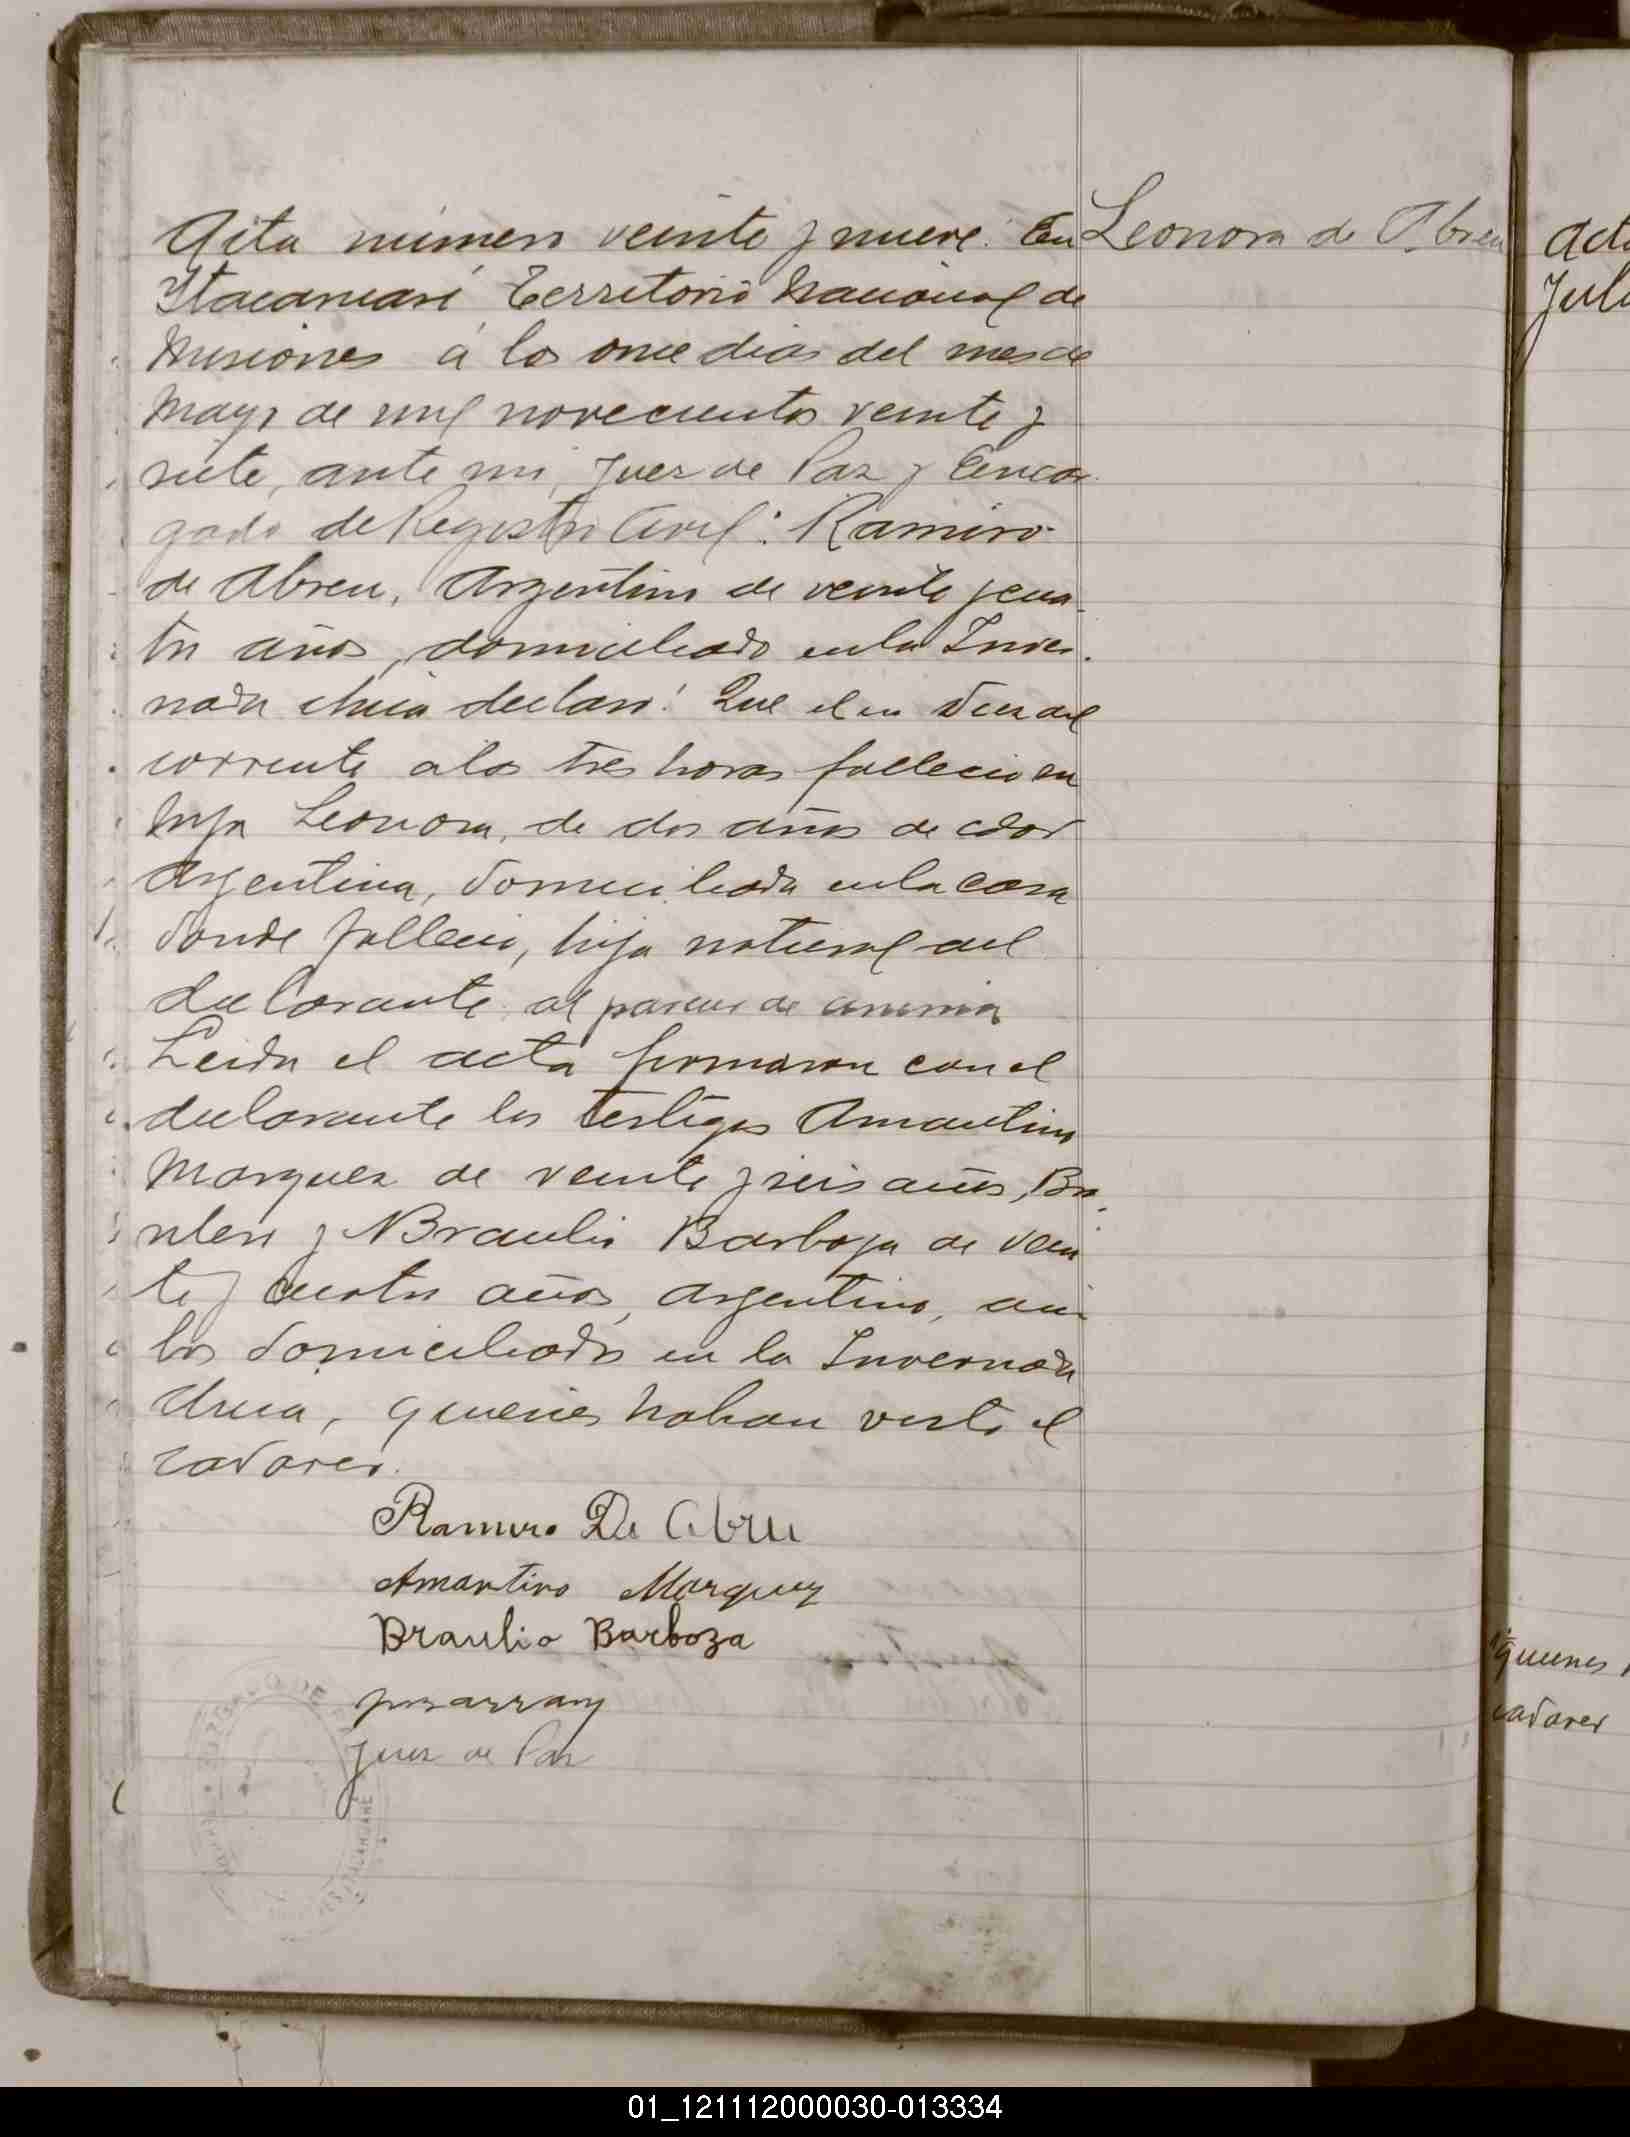 Acta número veinte y nueve. En
Itacaruaré Territorio Nacional de
Misiones á los once dias del mes de
Mayo de mil novecientos veinte y
siete, ante mi, Juez de Paz y Encar
gado de Registro Civil: Ramiro
de Abreu, Argentino de veinte y cua-
tro años, domiciliado en la Inver-
nada chica declaró: Que el dia diez del
corriente a las tres horas fallecio su
hija Leonora, de dos años de edad
Argentina, domiciliada en la casa
donde fallecio, hija natural del
declarante, al parecer de anemia
Leida el acta firmaron con el
declarante los testigos Amantino
Marquez de veinte y seis años, Bra-
silero y Braulio Barboza de vein
te y cuatro años, argentino, am
bos domiciliados en la Invernada
chica, quienes habian visto el
cadaver.
Leonora de Abreu
Ramiro De Abreu
Amantino Marquez
Braulio Barboza
Juez de Paz
JUZGADO DE
Acta
Juli
quienes
cadaver
01_121112000030-013334